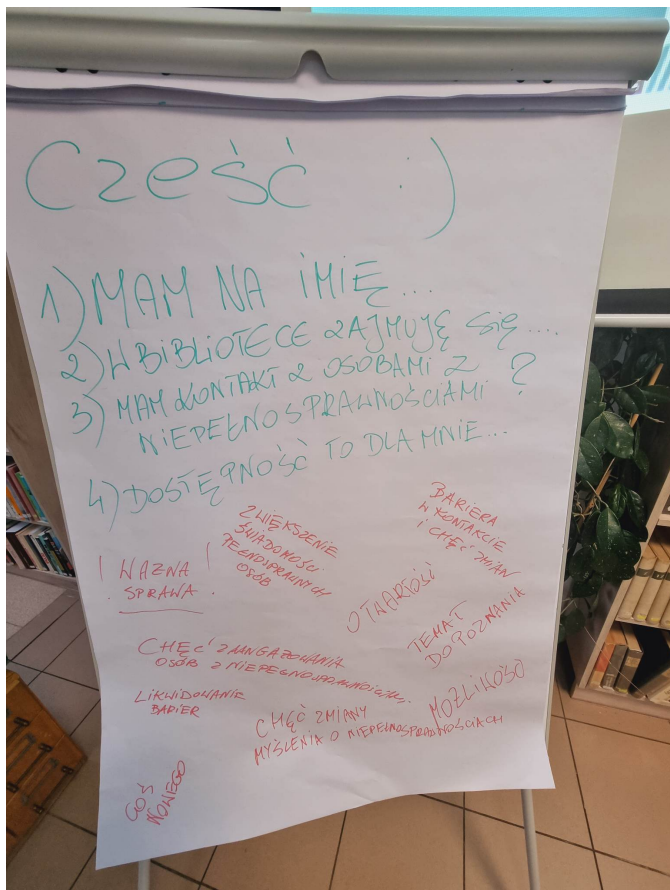 Cześć :)
1) MAM NA IMIĘ...
2) W BIBLIOTECE ZAJMUJĘ SIĘ....
3) MAM KONTAKT Z OSOBAMI Z
NIEPEŁNOSPRAWNOŚCIAMI ?
4) DOSTĘPNOŚĆ TO DLA MNIE...
! WAŻNA !
SPRAWA
ZWIĘKSZENIE
ŚWIADOMOŚCI
PEŁNOSPRAWNYCH
OSÓB
BARIERA
W KONTAKCIE
I CHĘĆ ZMIAN
OTWARTOŚĆ
TEMAT
DO POZNANIA
CHĘĆ ZAANGAŻOWANIA
OSÓB Z NIEPEŁNOSPRAWNOŚCIAMI
LIKWIDOWANIE
BARIER
MOŻLIWOŚĆ
CHĘĆ ZMIANY
MYŚLENIA O NIEPEŁNOSPRAWNOŚCIACH
COŚ
NOWEGO